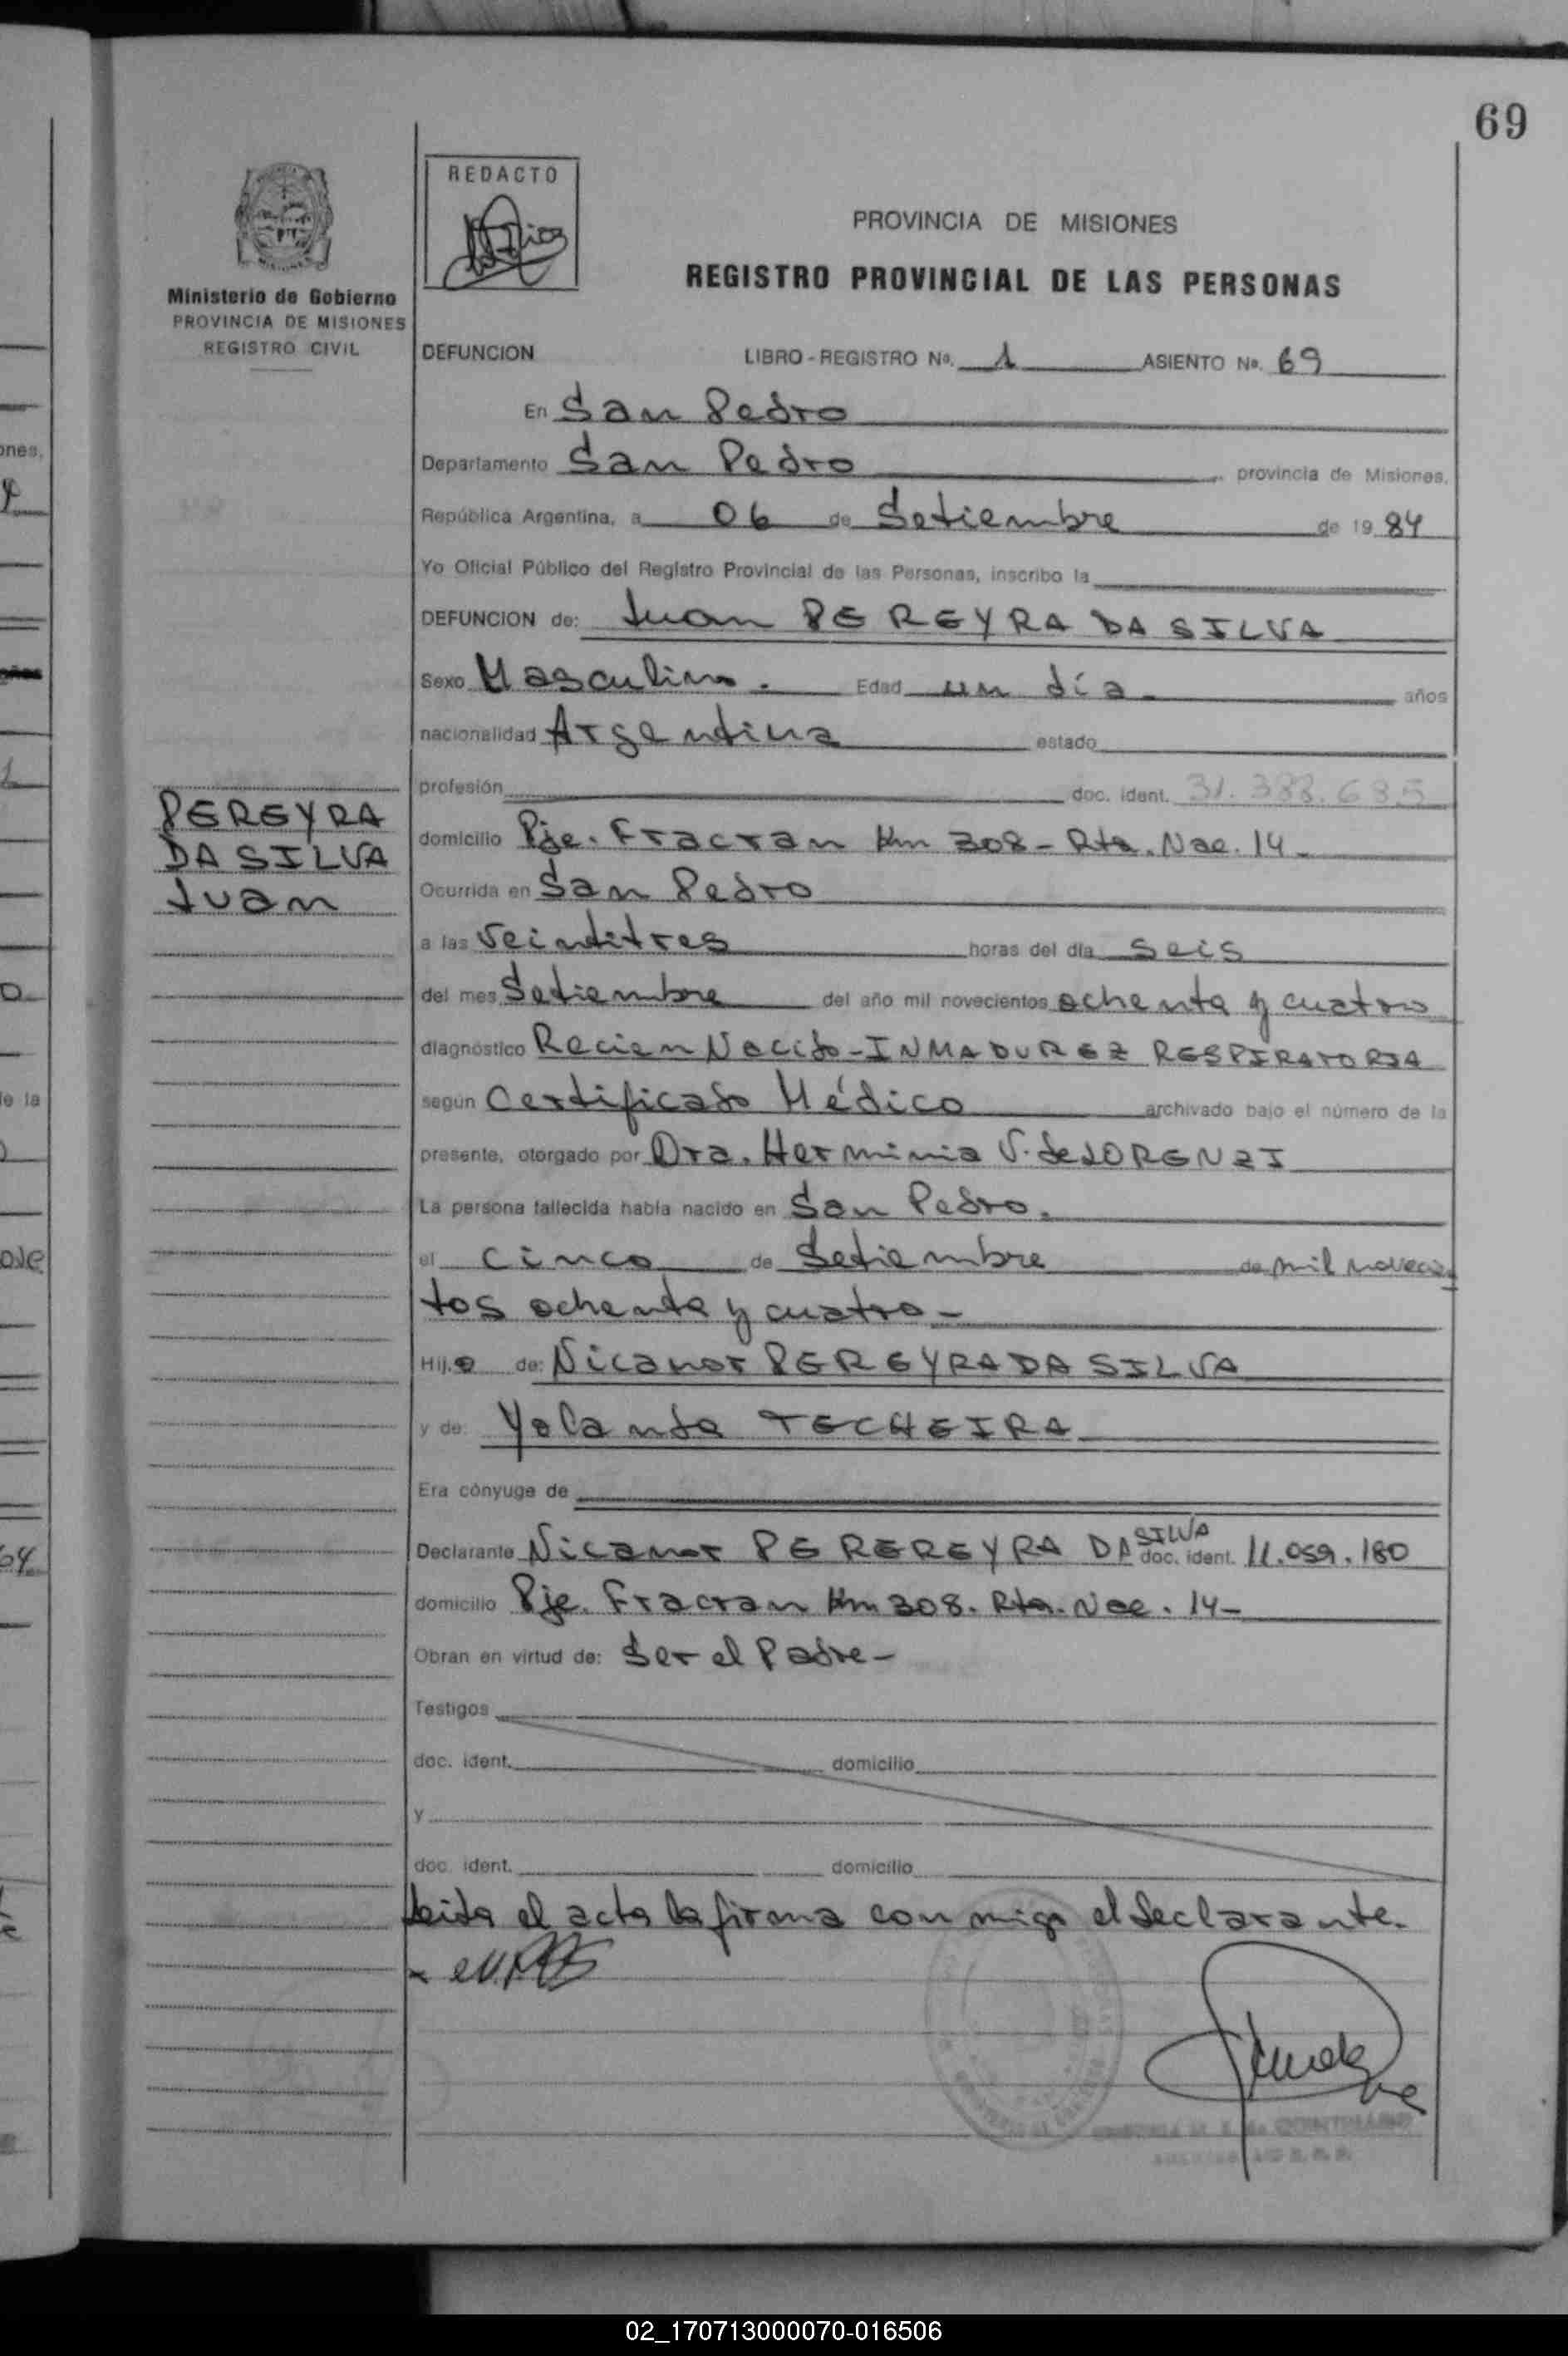 69
REDACTO
Ministerio de Gobierno
PROVINCIA DE MISIONES
REGISTRO CIVIL
PROVINCIA DE MISIONES
REGISTRO PROVINCIAL DE LAS PERSONAS
DEFUNCION LIBRO - REGISTRO No. 1 ASIENTO No. 69
En San Pedro
Departamento San Pedro provincia de Misiones,
República Argentina, a 06 de Setiembre de 1984
Yo Oficial Público del Registro Provincial de las Personas, inscribo la
DEFUNCION de: Juan PEREYRA DA SILVA
Sexo Masculino. Edad un día años
nacionalidad Argentina estado
profesión doc. ident. 31.388.685
PEREYRA
DA SILVA
Juan
domicilio Pje. Fracran Km 308 - Rta. Nac. 14 -
Ocurrida en San Pedro
a las Veintitres horas del día Seis
del mes Setiembre del año mil novecientos ochenta y cuatro
diagnóstico Recien Nacido - INMADUREZ RESPIRATORIA
según Certificado Médico archivado bajo el número de la
presente, otorgado por Dra. Herminia V. de LORENZI
La persona fallecida había nacido en San Pedro.
el cinco de Setiembre de mil novecien
tos ochenta y cuatro -
Hijo de: Nicanor PEREYRA DA SILVA
y de: Yolanda TECHEIRA
Era cónyuge de
Declarante Nicanor PEREREYRA DA SILVA doc. ident. 11.059.180
domicilio Pje. Fracran Km 308. Rta. Nac. 14 -
Obran en virtud de: Ser el Padre -
Testigos
doc. ident. domicilio
y
doc. ident. domicilio
Leida el acta la firma con migo el declarante.
02_170713000070-016506